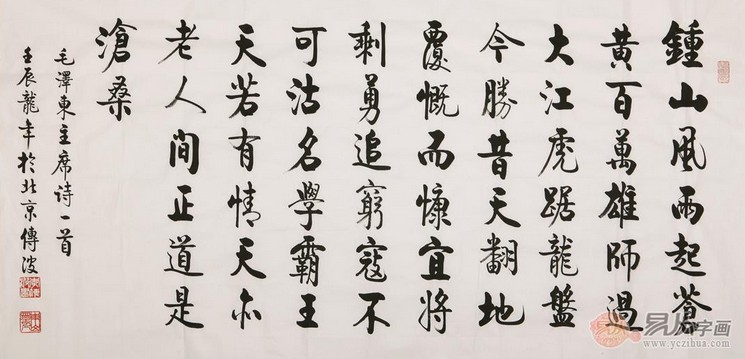 鍾山風雨起蒼
黃百萬雄師過
大江虎踞龍盤
今勝昔天翻地
覆慨而慷宜將
剩勇追窮寇不
可沽名學霸王
天若有情天亦
老人間正道是
滄桑
毛澤東主席诗一首
壬辰龍年於北京傳波
易从字画
www.yczihua.com